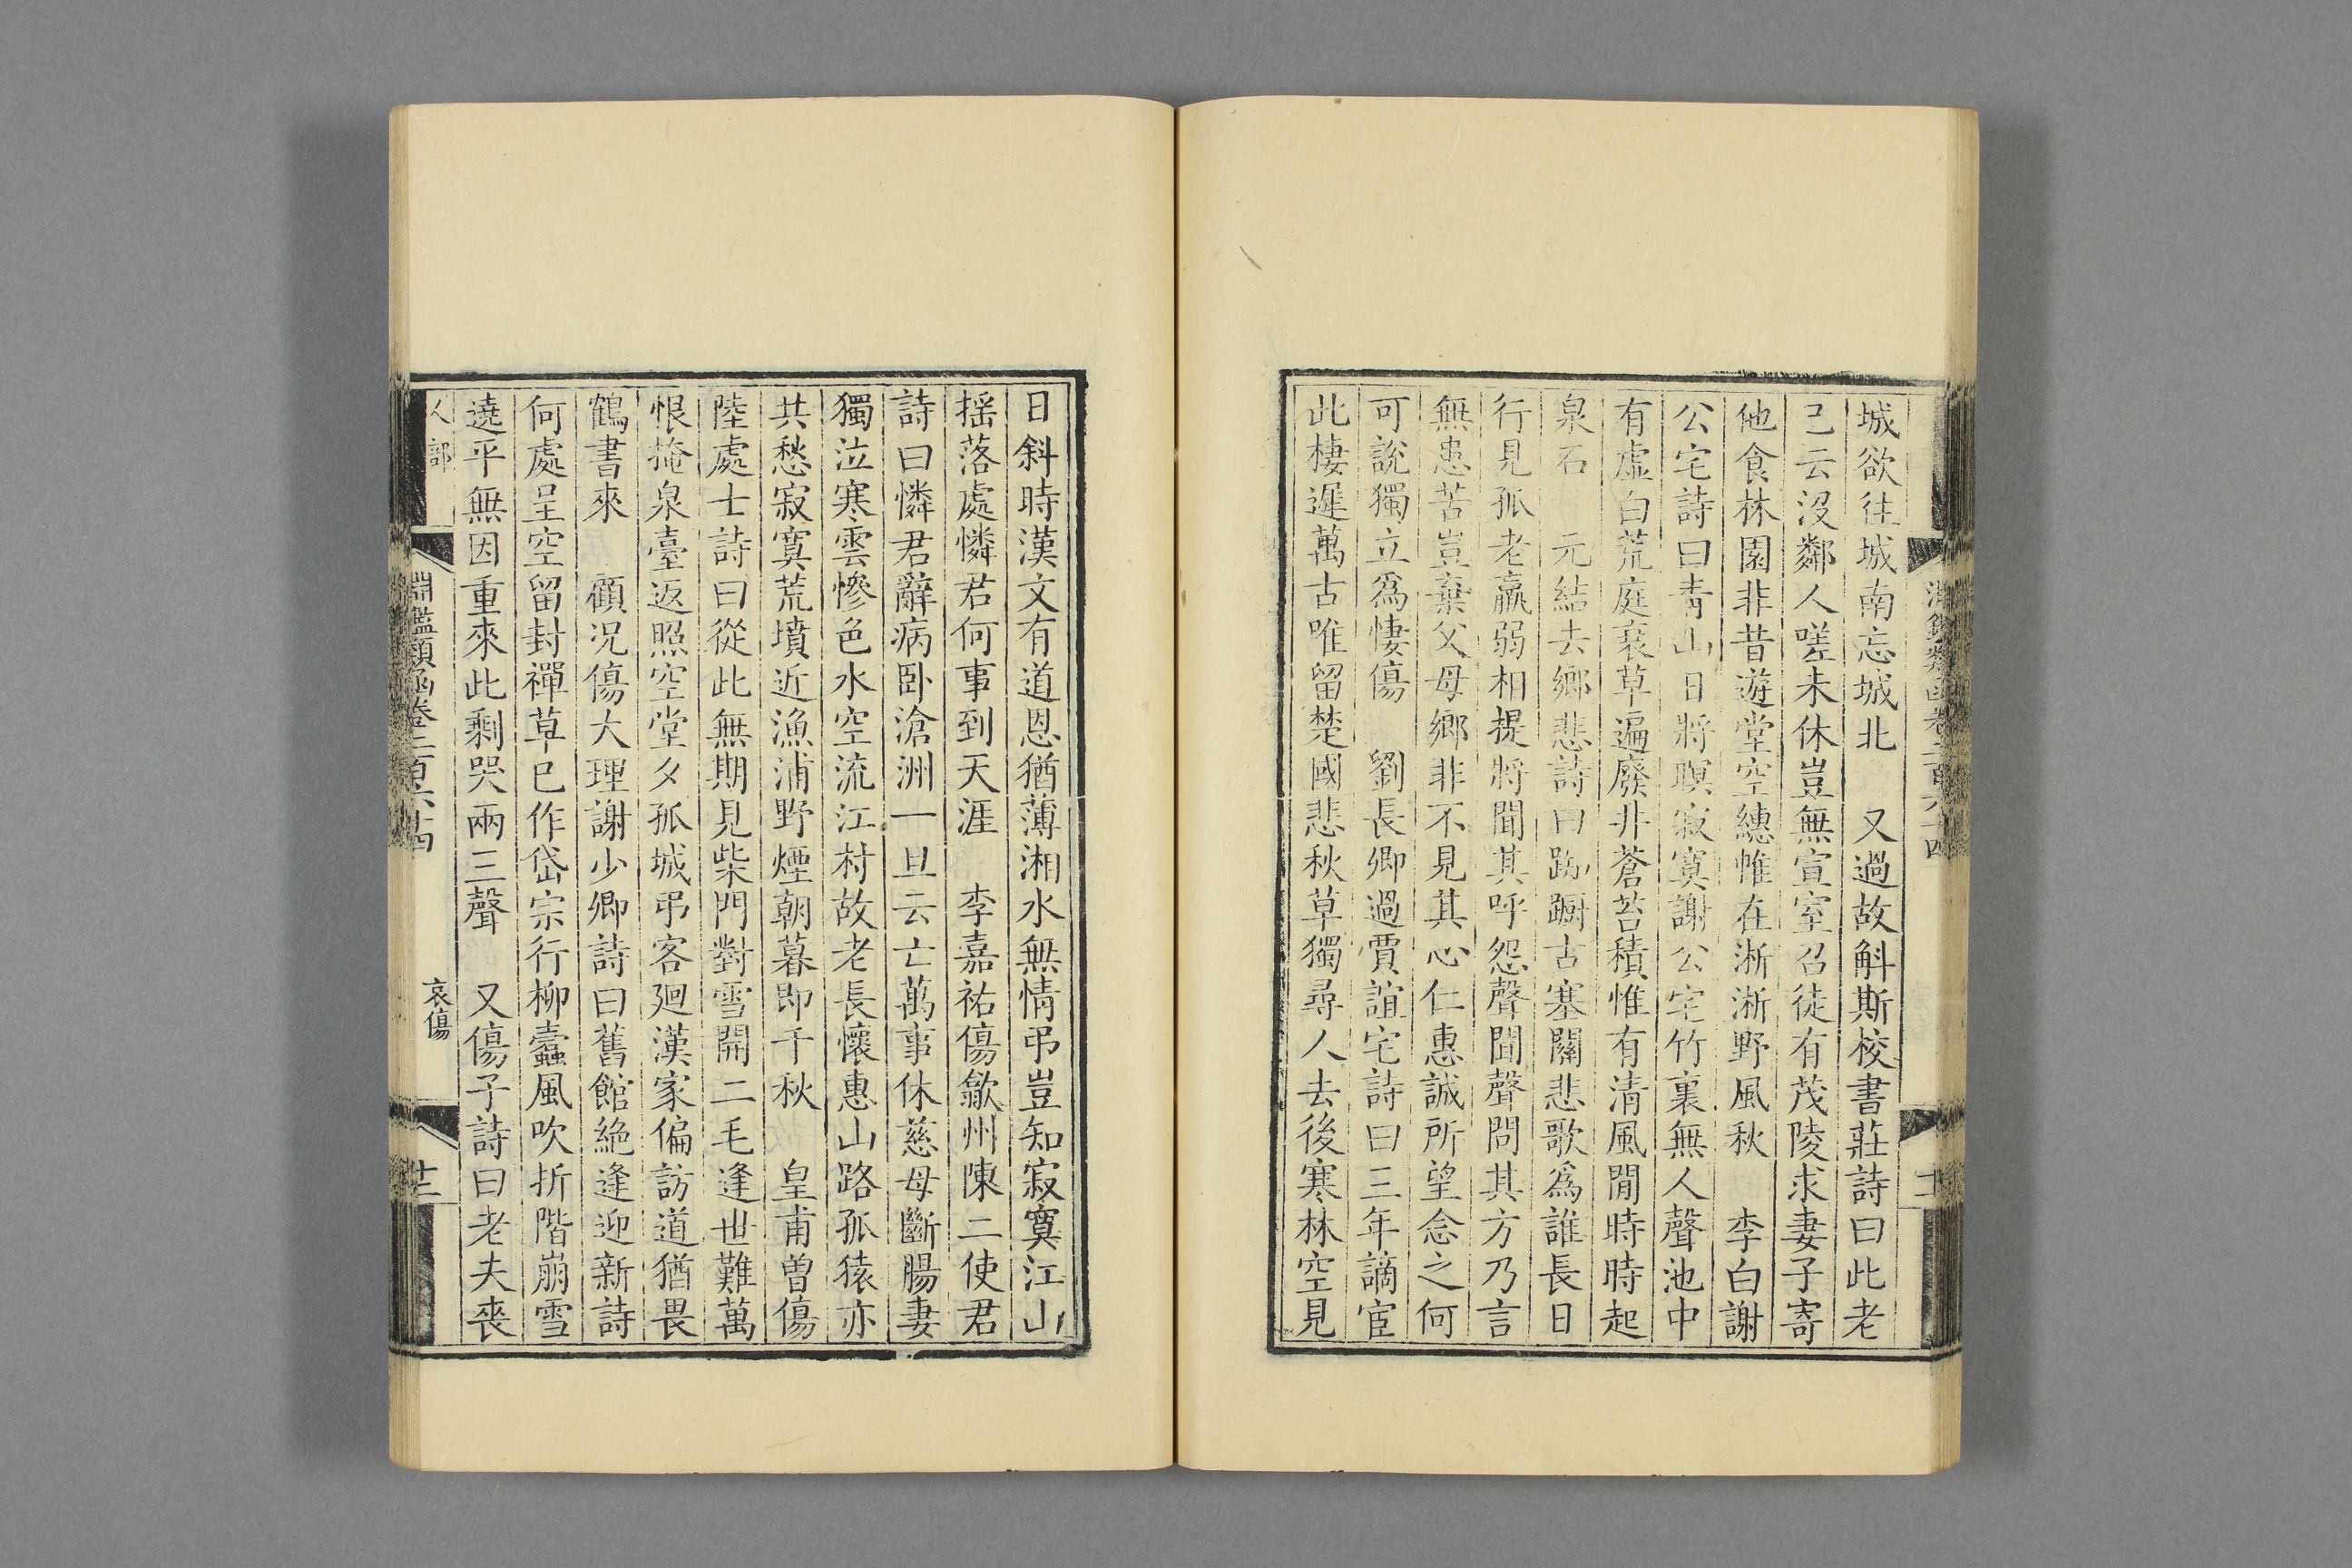 城欲往城南忘城北　又過故斛斯校書莊詩曰此老
已云沒鄰人嗟未休豈無宣室召徒有茂陵求妻子寄
他食林園非昔遊堂空繐帷在淅淅野風秋　李白謝
公宅詩曰青山日將暝寂寞謝公宅竹裏無人聲池中
有虛白荒庭衰草遍廢井蒼苔積惟有清風閒時時起
泉石　元結去鄉悲詩曰踟躕古塞關悲歌為誰長日
行見孤老羸弱相提將聞其呼怨聲聞聲問其方乃言
無患苦豈棄父母鄉非不見其心仁惠誠所望念之何
可說獨立為悽傷　劉長卿過賈誼宅詩曰三年謫宦
此棲遲萬古唯留楚國悲秋草獨尋人去後寒林空見
日斜時漢文有道恩猶薄湘水無情弔豈知寂寞江山
搖落處憐君何事到天涯　李嘉祐傷歙州陳二使君
詩曰憐君辭病臥滄洲一旦云亡萬事休慈母斷腸妻
獨泣寒雲慘色水空流江村故老長懷惠山路孤猿亦
共愁寂寞荒墳近漁浦野煙朝暮即千秋　皇甫曾傷
陸處士詩曰從此無期見柴門對雪開二毛逢世難萬
恨掩泉臺返照空堂夕孤城弔客迴漢家偏訪道猶畏
鶴書來　顧況傷大理謝少卿詩曰舊館絕逢迎新詩
何處呈空留封禪草已作岱宗行柳蠹風吹折階崩雪
遶平無因重來此剩哭兩三聲　又傷子詩曰老夫喪
人部　淵鑑類函卷二百六十四　哀傷